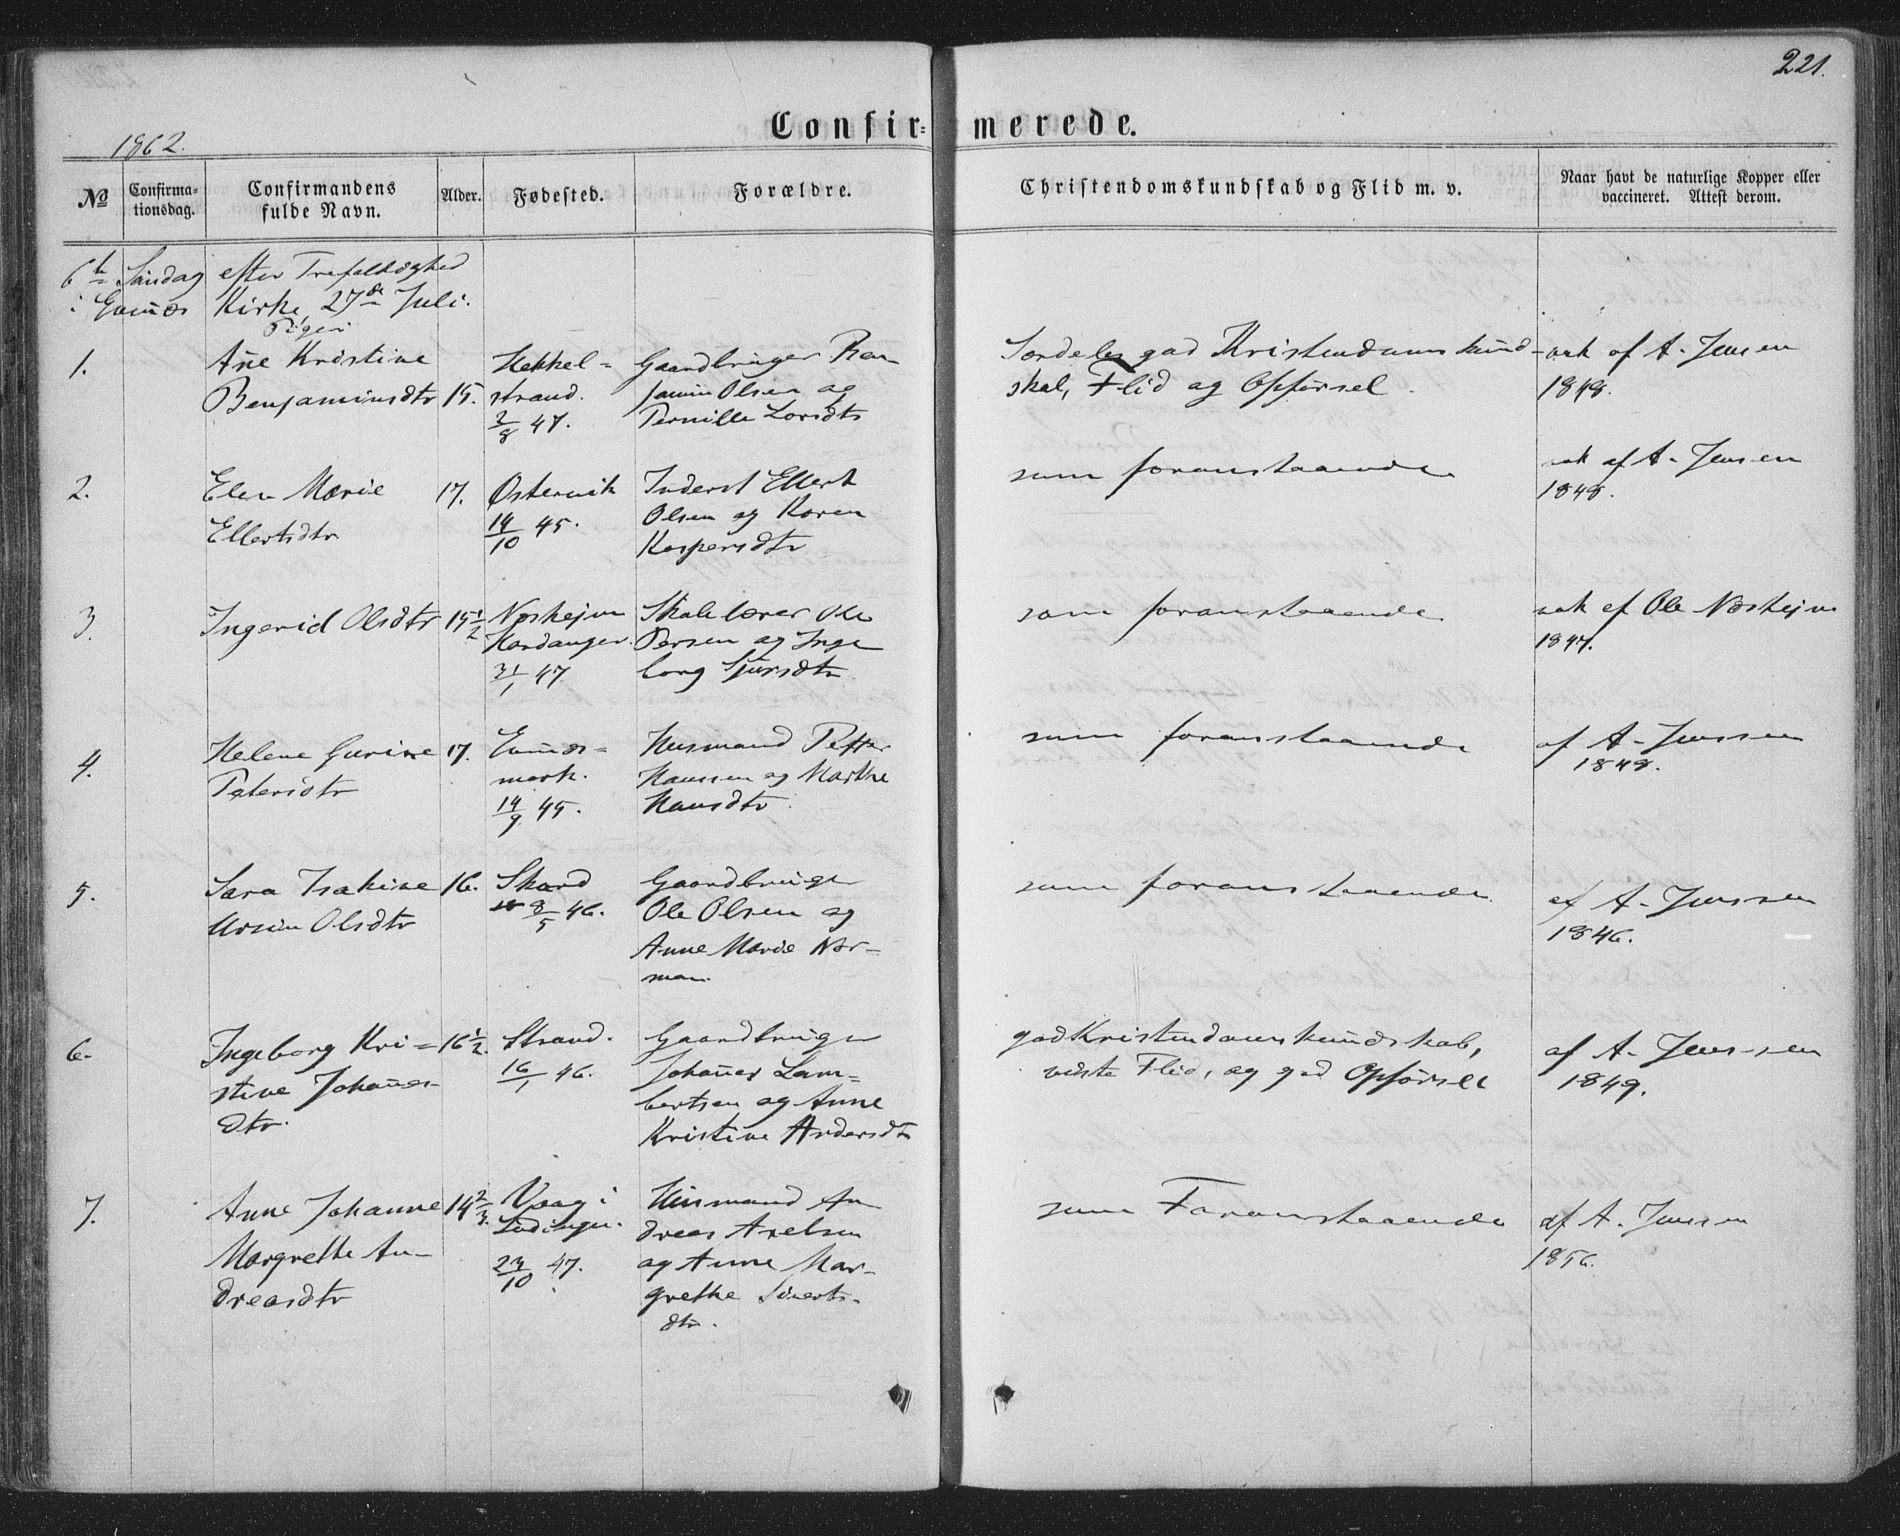 221.
Confir= merede.
1862.
No
Confirma-
tionsdag.
Confirmandens
fulde Navn.
Alder.
Fødested.
Forældre.
Christendomskundskab og Flid m. v.
Naar havt de naturlige Kopper eller
vaccineret. Attest derom.
6te Søndag efter Trefoldighed
i Evenæs Kirke 27de Juli.
Piger
1.
Ane Kristine
Benjaminsdtr
15.
Hekkel=
strand.
2/8 47.
Gaardbruger Ben
jamin Olsen og
Pernille Larsdtr
Særdeles god Kristendomskund-
skab, Flid og Opførsel.
vak af A. Jensen
1848.
2.
Elen Marie
Ellertsdtr
17.
Østervik
14/10 45.
Inderst Ellert
Olsen og Karen
Kaspersdtr
som foranstaaende
vak af A. Jensen
1848.
3.
Ingerid Olsdtr
15 1/2
Næshejm
Hardanger.
31/1 47
Skolelærer Ole
Persen og Inge
borg Sjursdtr
som foranstaaende
vak af Ole Næshejm
1847.
4.
Helene Gurine
Petersdtr
17.
Evenæs=
mark.
14/9 45.
Husmand Petter
Hanssen og Marthe
Hansdtr
som foranstaaende
af A. Jenssen
1848.
5.
Sara Isakine
Olsdtr
16.
Skard
8/5 46.
Gaardbruger
Ole Olsen og
Anne Marie Nor-
man.
som foranstaaende
af A. Jenssen
1846.
6.
Ingeborg Kri=
stine Johannes-
dtr.
16 1/2.
Strand.
16/1 46.
Gaardbruger
Johannes Lam=
bertsen og Anne
Kristine Andersdtr
god Kristendomskundskab,
Flid, og god Opførsel
af A. Jenssen
1849.
7.
Anne Johanne
Margrethe An-
dreasdtr
14 2/3.
Vaag i
Lødingen.
23/10 47.
Husmand An
dreas Axelsen
og Anne Mar-
grethe Siverts-
dtr.
som Foranstaaende
af A. Jenssen
1856.